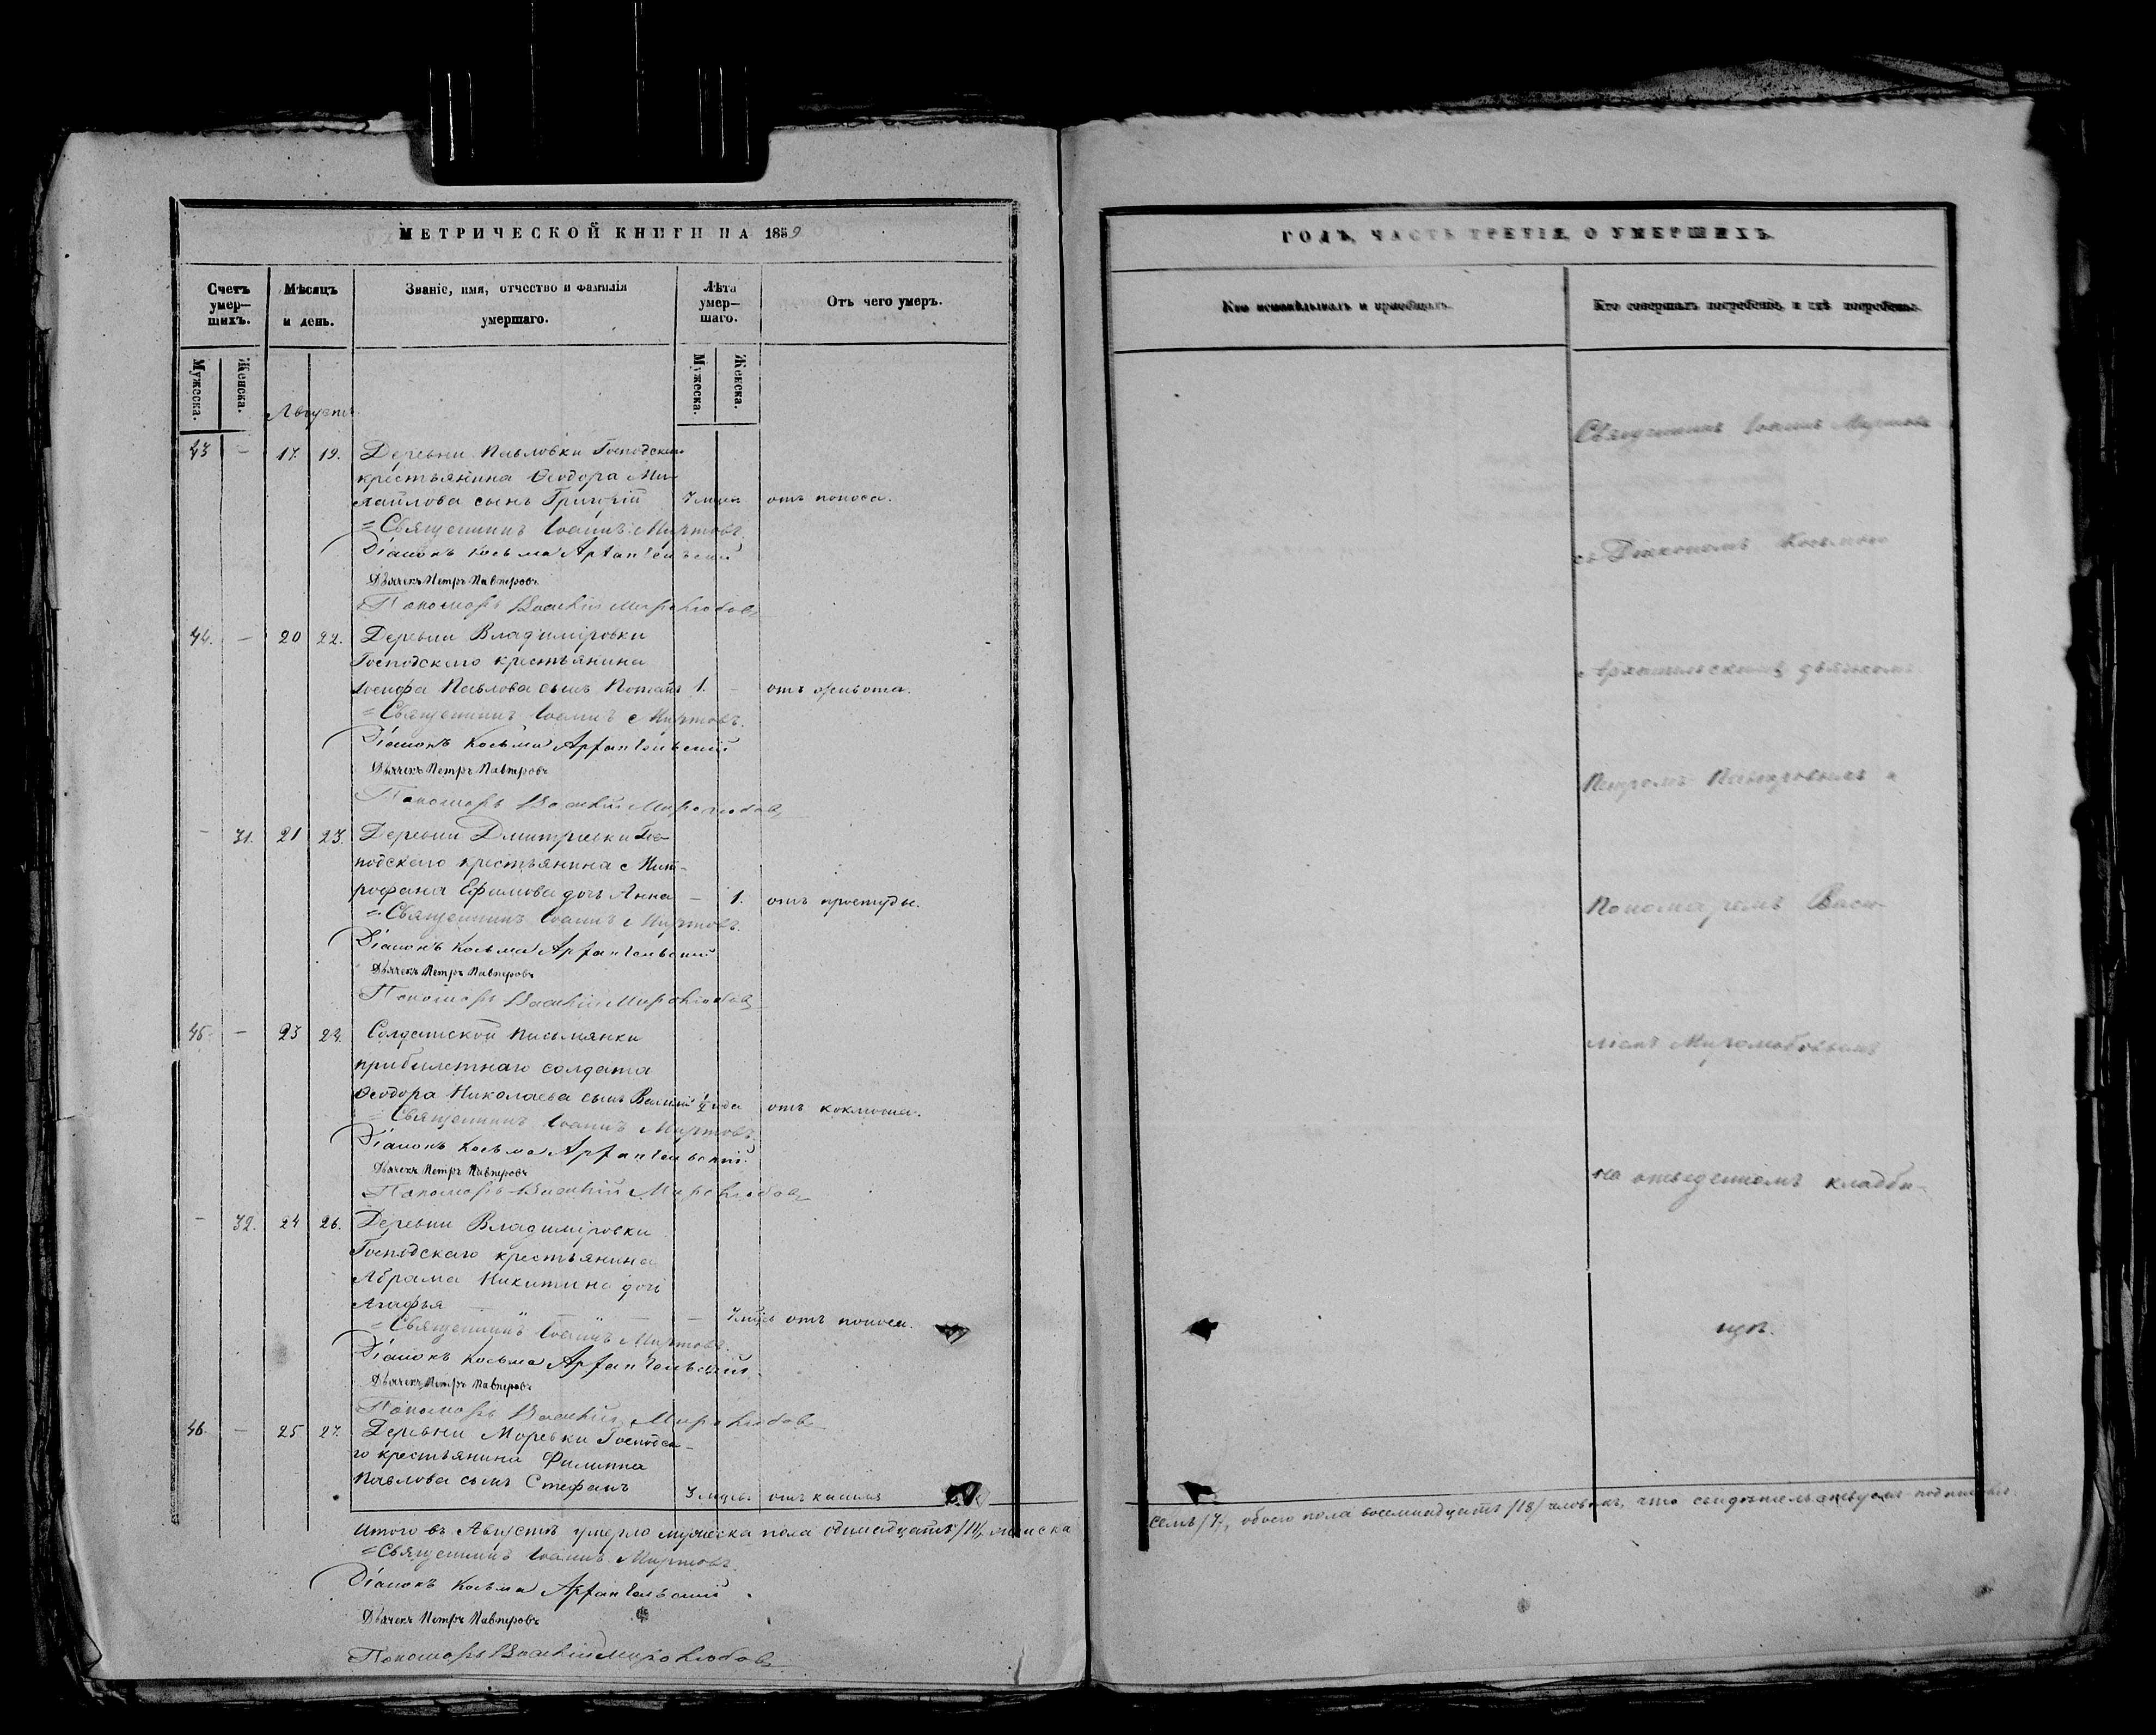 МЕТРИЧЕСКОЙ КНИГИ НА 1859
Счетъ умер-шихъ.
Мѣсяцъ и день.
Званіе, имя, отчество и фамилія умершаго.
Лѣта умер-шаго.
Отъ чего умеръ.
Мужеска.
Женска.
Мужеска.
Женска.
Августъ
43 — 17. 19. Деревни Павловки Господскаго
крестьянина Ѳеодора Ми-
хайлова сынъ Григорій отъ поноса.
Священникъ Іоаннъ Миртовъ.
Діаконъ Косьма Архангельскій
Дьячекъ Петръ Павперовъ
Пономарь Василій Миролюбовъ
44. — 20 22. Деревни Владиміровки
Господскаго крестьянина
Іосифа Павлова сынъ 1. — отъ живота.
Священникъ Іоаннъ Миртовъ.
Діаконъ Косьма Архангельскій
Дьячекъ Петръ Павперовъ
Пономарь Василій Миролюбовъ
— 31. 21 23. Деревни Дмитріевки Гос-
подскаго крестьянина Мит-
рофана Ефимова дочь Анна — 1. отъ простуды.
Священникъ Іоаннъ Миртовъ.
Діаконъ Косьма Архангельскій
Дьячекъ Петръ Павперовъ
Пономарь Василій Миролюбовъ
45. — 23 24. Солдатской Письмянки
прибилетнаго солдата
Ѳеодора Николаева сынъ Василій ½ года отъ коклюша.
Священникъ Іоаннъ Миртовъ.
Діаконъ Косьма Архангельскій.
Дьячекъ Петръ Павперовъ
Пономарь Василій Миролюбовъ
— 32. 24 26. Деревни Владиміровки
Господскаго крестьянина
Абрама Никитина дочь
Агафья — — отъ поноса.
Священникъ Іоаннъ Миртовъ.
Діаконъ Косьма Архангельскій.
Дьячекъ Петръ Павперовъ
Пономарь Василій Миролюбовъ
46. — 25 27. Деревни Моревки Господска-
го крестьянина Филиппа
Павлова сынъ Стефанъ отъ кашля
Итого въ Августѣ умерло мужеска пола одинадцать /11/, женска
Священникъ Іоаннъ Миртовъ
Діаконъ Косьма Архангельскій
Дьячекъ Петръ Павперовъ
Пономарь Василій Миролюбовъ
ГОДЪ, ЧАСТЬ ТРЕТІЯ, О УМЕРШИХЪ.
Кто исповѣдывалъ и пріобщалъ.
Кто совершалъ погребеніе, и гдѣ погребены.
Священникъ Іоаннъ Миртовъ
съ Діакономъ Косьмою
Архангельскимъ, дьячкомъ
Петромъ Павперовымъ и
Пономаремъ Васи-
ліемъ Миролюбовымъ
на отведенномъ кладби-
щѣ.
семь /7/, обоего пола восемнадцать /18/ человѣкъ, что свидѣтельствуемъ подписью